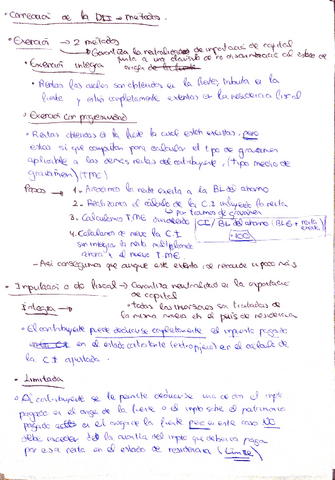 · Corrección de la DII → métodos.
· Exención → 2 métodos
→ Garantiza la neutralidad de importación de capital
· Exención íntegra
origen de la fuente
· Rentas las cuales son obtenidas en la fuente, tributa en la
fuente y están completamente exentas en la residencia fiscal
· Exención con progresividad
· Rentas obtenidas en la fuente la cual están exentas, pero
estas si que computan para calcular el tipo de gravamen
aplicable a las demás rentas del contribuyente, (tipo medio de
gravamen) (TMG)
Pasos 1. Añadimos la renta exenta a la BL del
2. Realizamos el cálculo de la C.I incluyendo la renta
por tramos de gravamen
3. Calculamos T.ME (CI / BL del (BLG + renta exenta
×100
4. Calculamos de nuevo la C.I
sin integrar la renta multiplicando
ahora el nuevo T.ME
- Así conseguimos que aunque este exenta se recaude un poco más
· Imputación o de fiscal → Garantiza neutralidad en la exportación
de capital
Íntegra → todos los inversores son tratados de
la misma manera en el país de residencia
· El contribuyente puede deducirse completamente el impuesto pagado
en el estado (extranjero) en el cálculo de
la C.I
· Limitada
· Al contribuyente se le permite deducirse una con el impto
pagado en el origen de la fuente o el impto sobre el patrimonio
pagado en el origen de la fuente pero en este caso NO
debe exceder del la cuantía del impto que deberia pagar
por esa renta en el estado de residencia (Límite)